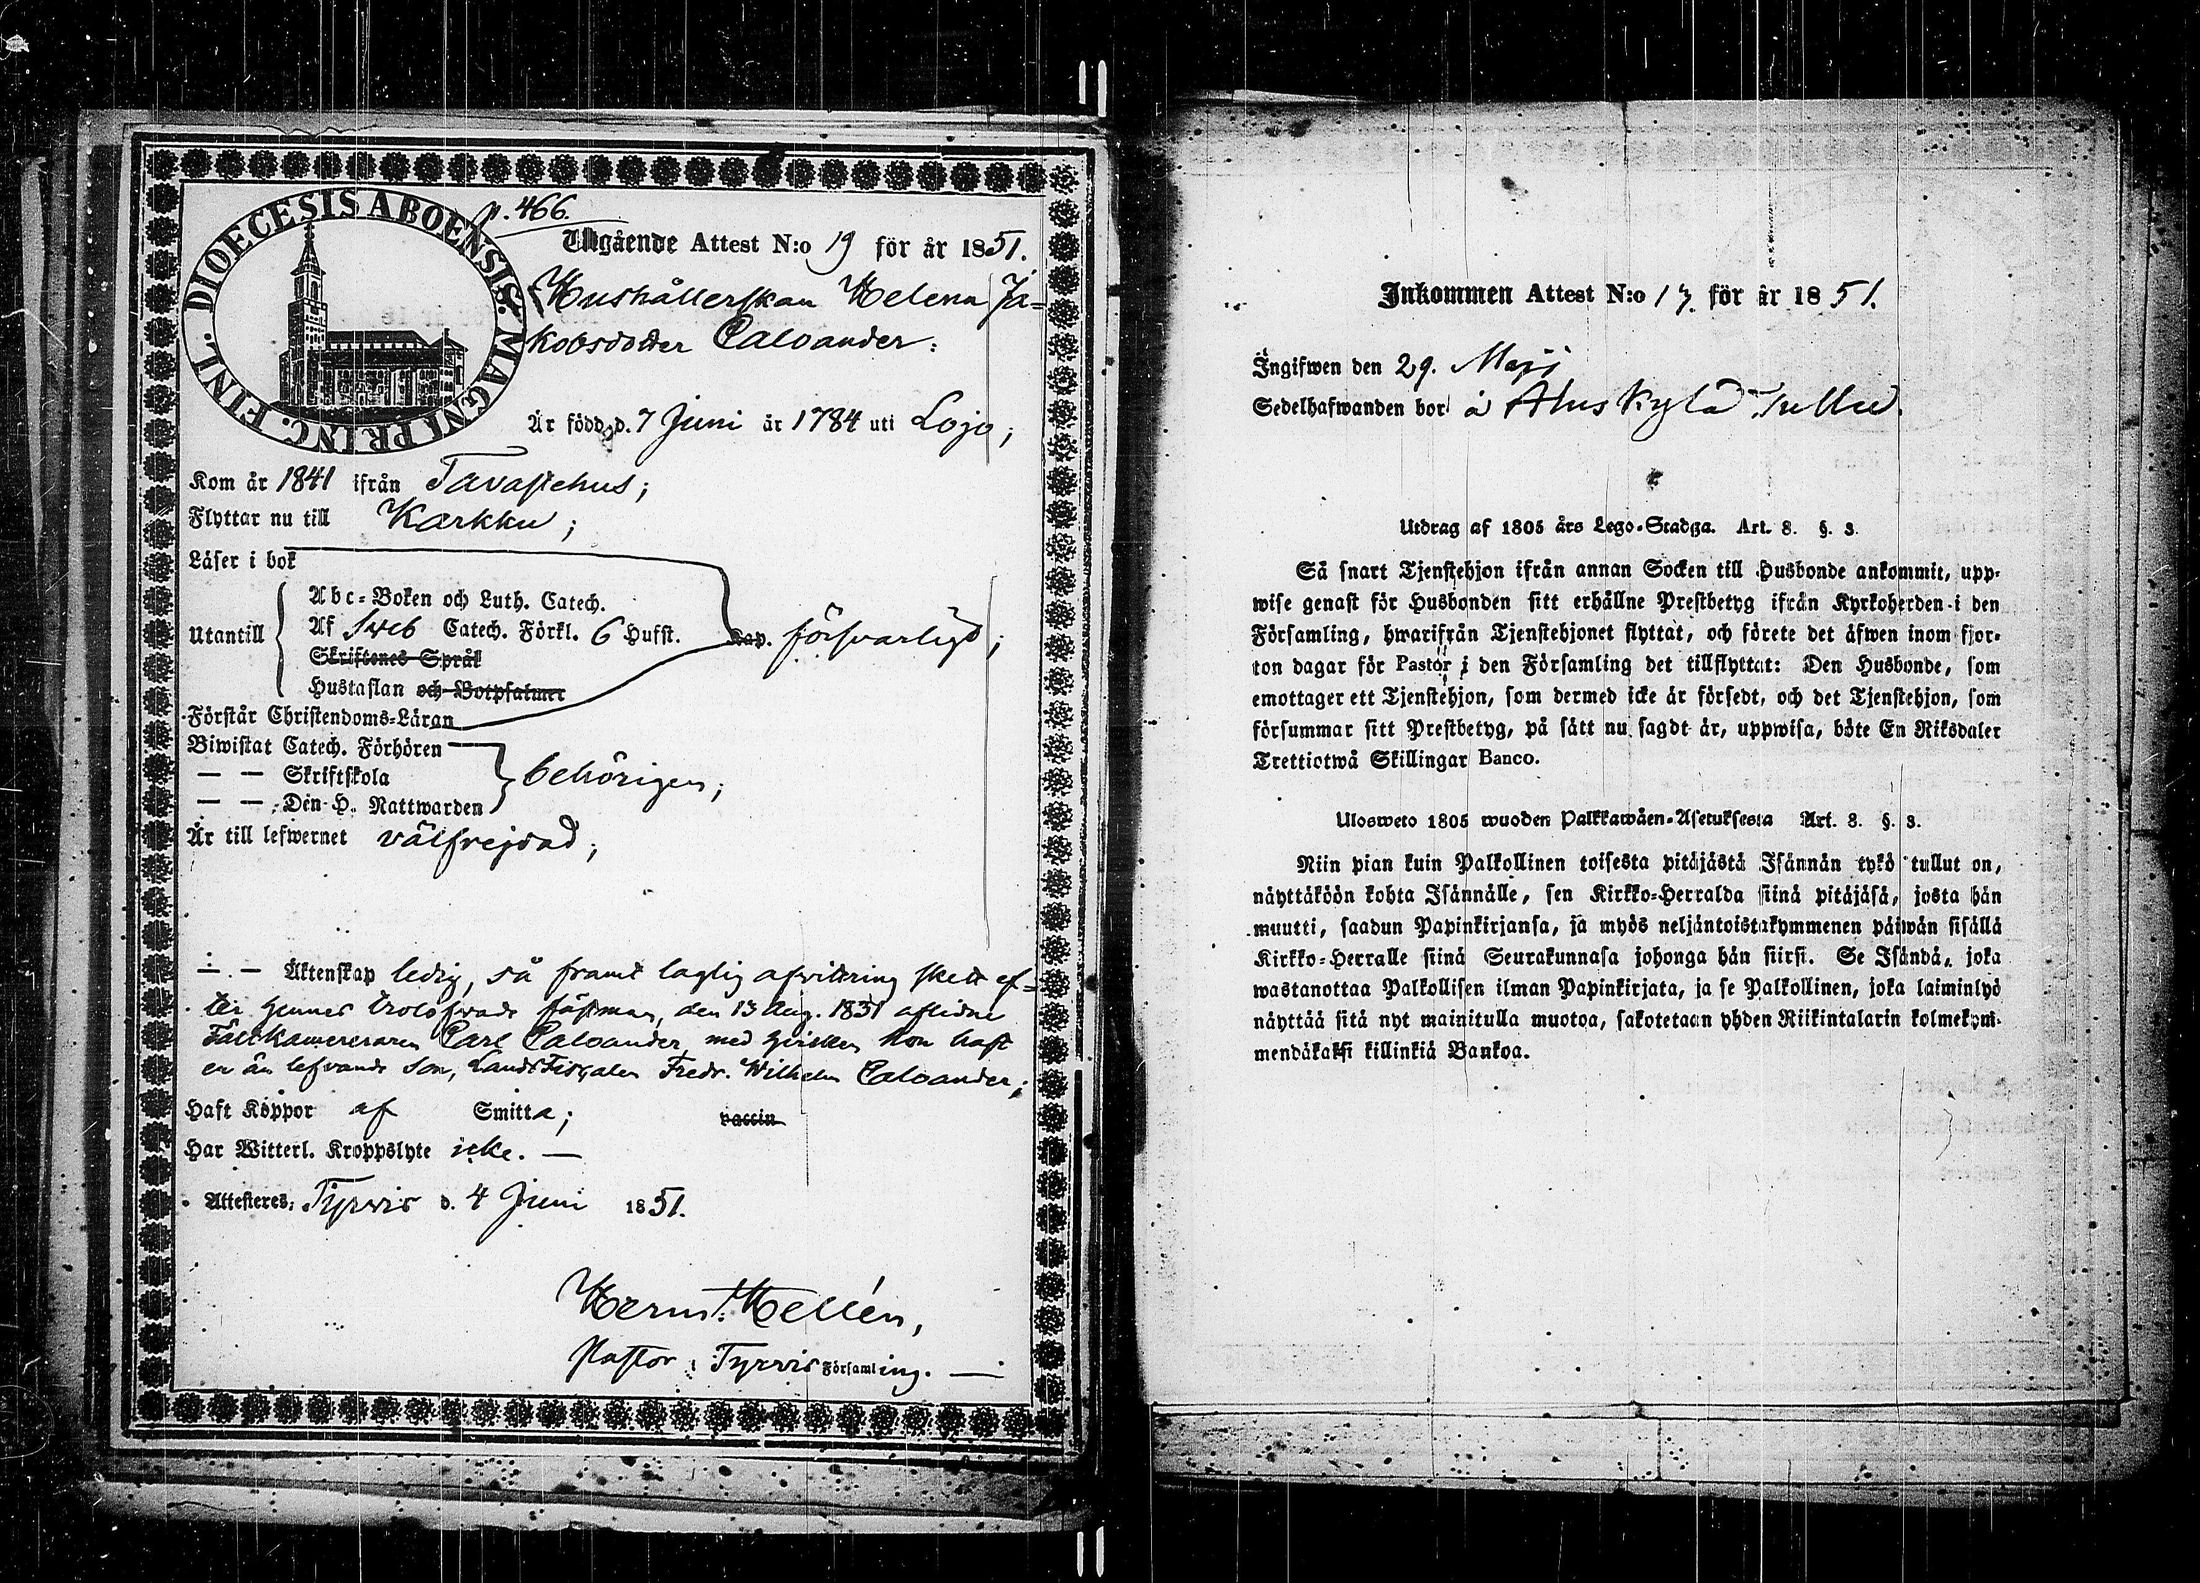 DIOECESIS ABOENSIS. MAGNI PRINC. FINL.
p. 466.
Utgående Attest N:o 19 för år 1851.
Hushållerskan Helena Ja-
kobsdotter Caloander:
Är född d. 7 Juni år 1784 uti Lojo;
Kom år 1841 ifrån Tavastehus;
Flyttar nu till Karkku;
Läser i bok
Utantill
Abc-Boken och Luth. Catech.
Af Sveb Catech. Förkl. 6 Hufst.
Skriftenes Språk
Hustaflan och Botpsalmer
Kap. försvarligt;
Förstår Christendoms-Läran
Biwistat Catech. Förhören
— — Skriftskola
— — Den H. Nattwarden
behörigen;
Är till lefwernet välfrejdad;
— — Äktenskap ledig, så framt laglig afvittring skett ef-
ter hennes trolofvade fästman, den 13 Aug. 1831 aflidne
Fältkamereraren Carl Caloander, med hvilken hon haft
en än lefvande son, LandsFiscalen Fredr. Wilhelm Caloander;
Haft Koppor af Smitta; vaccin
Har Witterl. Kroppslyte icke. —
Attesteras, Tyrvis d. 4 Juni 1851.
Herm. Hellén,
Pastor i Tyrvis Församling. —
Inkommen Attest N:o 17. för år 1851.
Ingifwen den 29. Maji
Sedelhafwanden bor å Aluskylä Tullu.
Utdrag af 1805 års Lego-Stadga. Art. 8. §. 3.
Så snart Tjenstehjon ifrån annan Socken till Husbonde ankommit, upp-
wise genast för Husbonden sitt erhållne Prestbetyg ifrån Kyrkoherden i den
Församling, hwarifrån Tjenstehjonet flyttat, och förete det äfwen inom fjor-
ton dagar för Pastor i den Församling det tillflyttat: Den Husbonde, som
emottager ett Tjenstehjon, som dermed icke är försedt, och det Tjenstehjon, som
försummar sitt Prestbetyg, på sätt nu sagdt är, uppwisa, böte En Riksdaler
Trettiotwå Skillingar Banco.
Ulosweto 1805 wuoden Palkkawäen-Asetuksesta Art. 8. §. 3.
Niin pian kuin Palkollinen toisesta pitäjästä Isännän tykö tullut on,
näyttäköön kohta Isännälle, sen Kirkko-Herralda siinä pitäjäsä, josta hän
muutti, saadun Papinkirjansa, ja myös neljäntoistakymmenen päiwän sisällä
Kirkko-Herralle siinä Seurakunnasa johonga hän siirsi. Se Isändä, joka
wastanottaa Palkollisen ilman Papinkirjata, ja se Palkollinen, joka laiminlyö
näyttää sitä nyt mainitulla muotoa, sakotetaan yhden Riikintalarin kolmekym-
mendäkaksi killinkiä Bankoa.